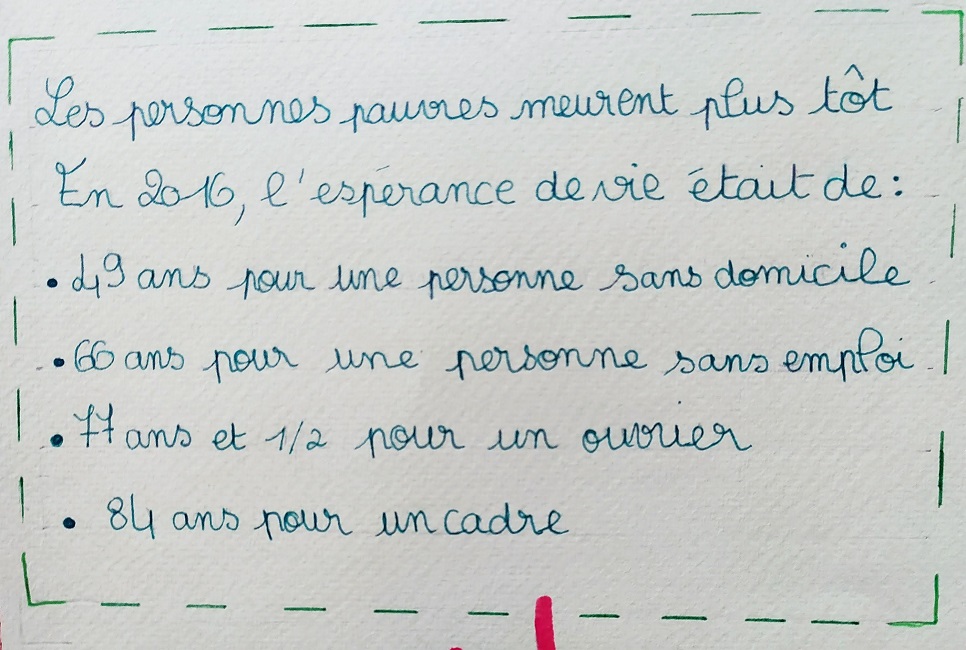 Les personnes pauvres meurent plus tôt
En 2016, l'espérance de vie était de :
• 49 ans pour une personne sans domicile
• 66 ans pour une personne sans emploi
• 77 ans et 1/2 pour un ouvrier
• 84 ans pour un cadre